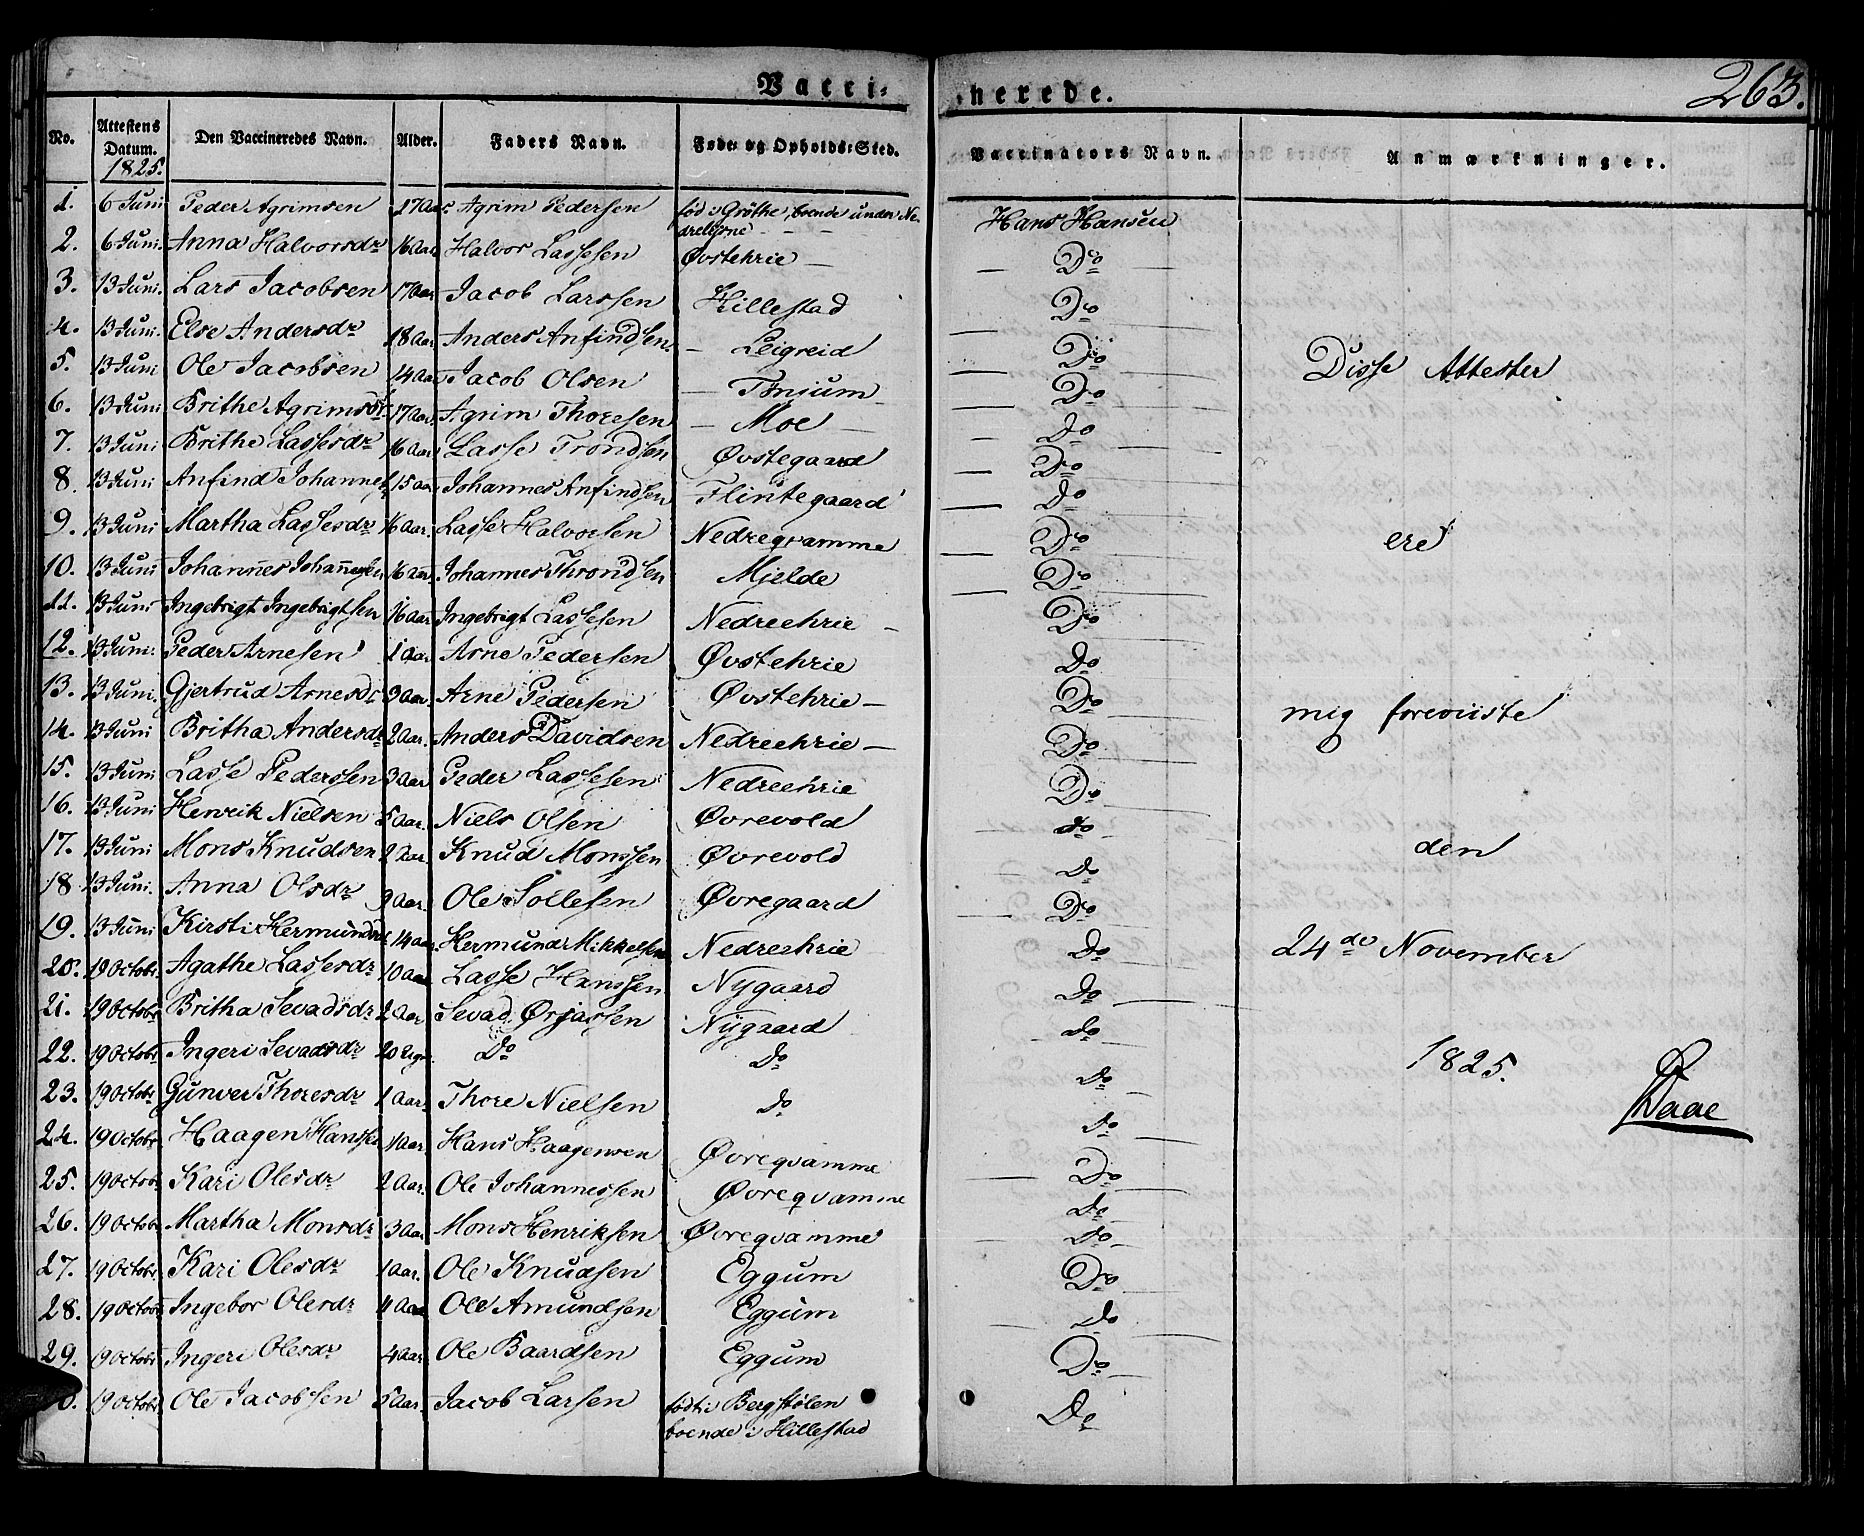 Vacci-
nerede.
263.
No. | Attestens Datum. 1825. | Den Vaccineredes Navn. | Alder. | Faders Navn. | Føde- og Opholds-Sted. | Vaccinators Navn. | Anmærkninger.
1. | 6 Juni | Peder Agrimsen | 17 Aar | Agrim Pedersen | fød i Gröthe, boende under Ne-
drelione | Hans Hansen
2. | 6 Juni | Anna Halvorsdr | 16 Aar | Halvor Lassesen | Øvstehrie | Do
3. | 13 Juni. | Lars Jacobsen | 17 Aar | Jacob Larssen | Hillestad | Do
4. | 13 Juni. | Else Andersdr | 18 Aar | Anders Anfindsen | Leigreid | Do
5. | 13 Juni | Ole Jacobsen | 14 Aar | Jacob Olsen | Tønium | Do | Disse Attester
6. | 13 Juni | Brithe Agrimsdr | 17 Aar | Agrim Thoresen | Moe | Do
7. | 13 Juni | Brithe Lassesdr | 16 Aar | Lasse Trondsen | Øvstegaard | Do
8. | 13 Juni | Anfind Johannes | 15 Aar | Johannes Anfindsen | Flintegaard | Do
9. | 13 Juni | Martha Lassesdr | 16 Aar. | Lasse Halvorsen | Nedreqvamme | Do | ere
10. | 13 Juni | Johannes Johannessen | 16 Aar | Johannes Throndsen | Mjelde | Do
11. | 13 Juni | Ingebrigt Ingebrigtsen | 16 Aar | Ingebrigt Lassesen | Nedreehrie | Do
12. | 13 Juni. | Peder Arnesen | 1 Aar | Arne Pedersen | Øvstehrie | Do
13. | 13 Juni. | Gjertrud Arnesdr | 3 Aar. | Arne Pedersen | Øvstehrie | Do | mig foreviiste
14. | 13 Juni | Britha Andersdr | 2 Aar. | Anders Davidsen | Nedreehrie | Do
15. | 13 Juni | Lasse Pederssen | 3 Aar | Peder Lassesen | Nedreehrie | Do
16. | 13 Juni | Henrik Nielsen | 5 Aar. | Niels Olsen | Øvrevold | do
17. | 13 Juni | Mons Knudsen | 2 Aar. | Knud Monssen | Øvrevold | Do | den
18 | 13 Juni. | Anna Olsdr | 9 Aar. | Ole Sollesen | Øvregaard | Do
19. | 13 Juni | Kirsti Hermundsdr | 14 Aar | Hermund Mikkelsen | Nedreehrie | Do | 24de November
20. | 19 Octobr. | Agathe Lassesdr | 10 Aar | Lasse Hanssen | Nygaard | Do
21. | 19 Octobr | Britha Sevadsdr | 2 Aar | Sevad Ørjassen | Nygaard | do
22. | 19 Octobr | Ingeri Sevadsdr | 20 Uger | Do | Do | Do | 1825.
23. | 19 Octobr | Gunver Thoresdr | 1 Aar. | Thore Nielsen | do | Do | Daae
24. | 19 Octobr | Haagen Hansse | 1 Aar. | Hans Haagensen | Øvreqvamme | Do
25. | 19 Octobr | Kari Olesdr | 2 Aar. | Ole Johannessen | Øvreqvamme | Do
26. | 19 Octobr. | Martha Monsdr | 3 Aar | Mons Henriksen | Øvreqvamme | Do
27. | 19 Octobr. | Kari Olesdr | 1 Aar. | Ole Knudsen | Eggum | Do
28. | 19 Octobr | Ingebor Olesdr | 4 Aar | Ole Amundsen | Eggum | Do
29. | 19 Octobr | Ingeri Olesdr | 4 Aar. | Ole Baardsen | Eggum | Do
0. | 19 Octobr. | Ole Jacobssen | 5 Aar. | Jacob Larsen | født i Bergstølen
boende i Hillestad | Do